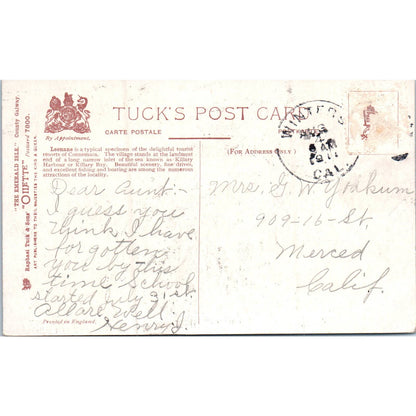 TUCK'S POST CARD
CARTE POSTALE
By Appointment.
"THE EMERALD ISLE." County Galway.
Raphael Tuck & Sons' "OILETTE" Postcard 7800.
ART PUBLISHERS TO THEIR MAJESTIES THE KING & QUEEN
Leenane is a typical specimen of the delightful tourist
resorts of Connemara. The village stands at the landmost
end of a long narrow inlet of the sea known as Killary
Harbour or Killary Bay. Beautiful scenery, fine drives,
and excellent fishing and boating are among the numerous
attractions of the locality.
(FOR ADDRESS ONLY)
WINTERS
AUG
1911
CAL.
Dear Aunt:-
I guess you
think I have
forgotten
you by this
time School
started July 31st.
All are Well.
Henry J.
Printed in England.
Mrs. G. W. Yodkum
909-16-St.
Merced
Calif.